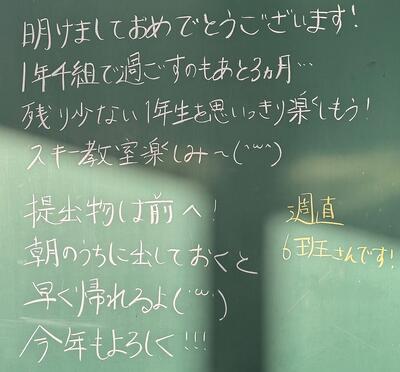 明けましておめでとうございます!
1年4組で過ごすのもあと3ヵ月…
残り少ない1年生を思いっきり楽しもう!
スキー教室楽しみ~(^ω^)
提出物は前へ!
朝のうちに出しておくと
早く帰れるよ(・ω・)
今年もよろしく!!!
週直
6班さんです!